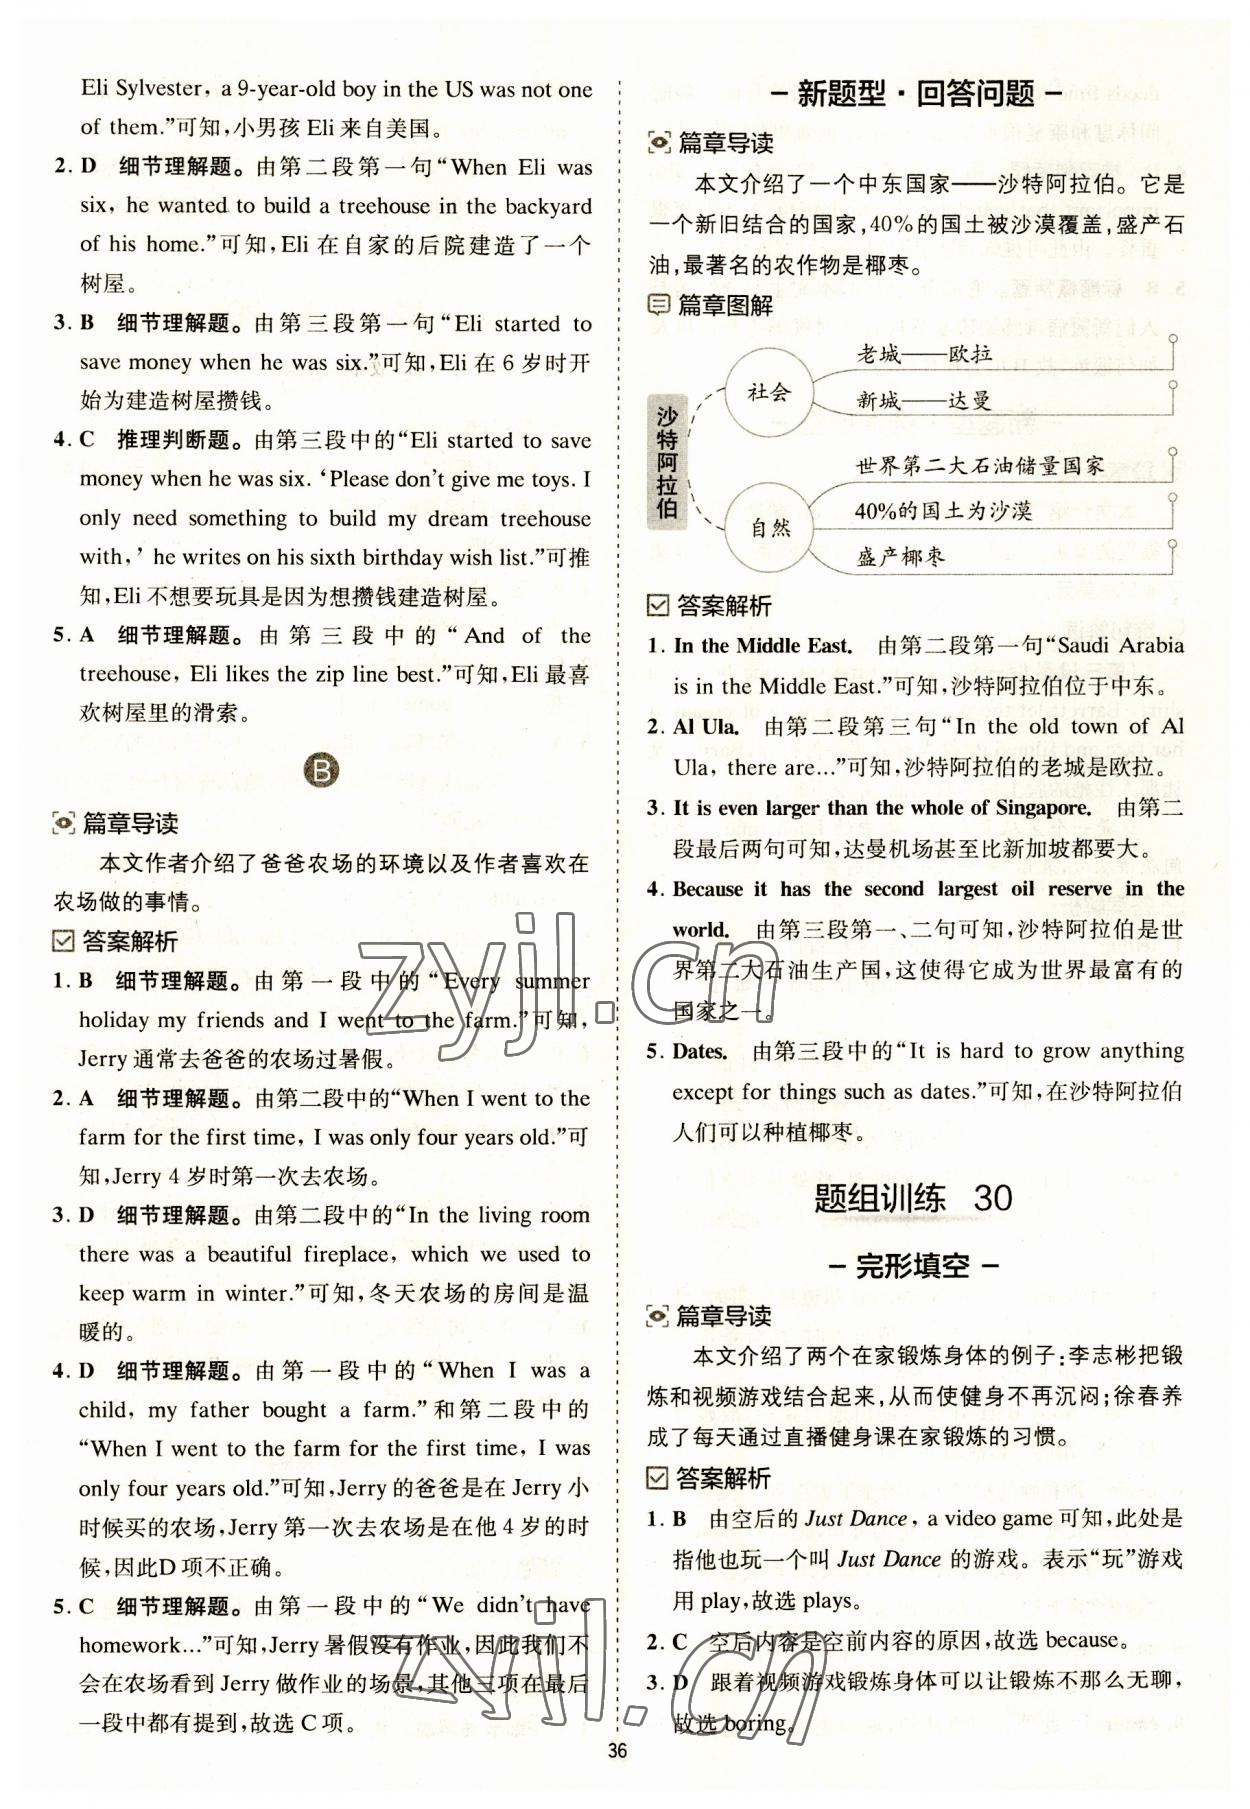 Eli Sylvester, a 9-year-old boy in the US was not one
of them.”可知,小男孩 Eli 来自美国。
2. D 细节理解题。由第二段第一句“When Eli was
six, he wanted to build a treehouse in the backyard
of his home.”可知, Eli 在自家的后院建造了一个
树屋。
3. B 细节理解题。由第三段第一句“Eli started to
save money when he was six.”可知, Eli 在 6 岁时开
始为建造树屋攒钱。
4. C 推理判断题。由第三段中的“Eli started to save
money when he was six. ‘Please don't give me toys. I
only need something to build my dream treehouse
with,’ he writes on his sixth birthday wish list.”可推
知,Eli 不想要玩具是因为想攒钱建造树屋。
5. A 细节理解题。由第三段中的“And of the
treehouse, Eli likes the zip line best.”可知,Eli 最喜
欢树屋里的滑索。
B
篇章导读
本文作者介绍了爸爸农场的环境以及作者喜欢在
农场做的事情。
答案解析
1. B 细节理解题。由第一段中的“Every summer
holiday my friends and I went to the farm.”可知,
Jerry 通常去爸爸的农场过暑假。
2. A 细节理解题。由第二段中的“When I went to the
farm for the first time, I was only four years old.”可
知,Jerry 4 岁时第一次去农场。
3. D 细节理解题。由第二段中的“In the living room
there was a beautiful fireplace, which we used to
keep warm in winter.”可知,冬天农场的房间是温
暖的。
4. D 细节理解题。由第一段中的“When I was a
child, my father bought a farm.”和第二段中的
“When I went to the farm for the first time, I was
only four years old.”可知,Jerry 的爸爸是在 Jerry 小
时候买的农场,Jerry 第一次去农场是在他 4 岁的时
候,因此D 项不正确。
5. C 细节理解题。由第一段中的“We didn't have
homework...”可知,Jerry 暑假没有作业,因此我们不
会在农场看到 Jerry 做作业的场景,其他三项在最后
一段中都有提到,故选 C 项。
- 新题型·回答问题 -
篇章导读
本文介绍了一个中东国家——沙特阿拉伯。它是
一个新旧结合的国家,40%的国土被沙漠覆盖,盛产石
油,最著名的农作物是椰枣。
篇章图解
沙特阿拉伯
社会
老城——欧拉
新城——达曼
自然
世界第二大石油储量国家
40%的国土为沙漠
盛产椰枣
答案解析
1. In the Middle East. 由第二段第一句“Saudi Arabia
is in the Middle East.”可知,沙特阿拉伯位于中东。
2. Al Ula. 由第二段第三句“In the old town of Al
Ula, there are...”可知,沙特阿拉伯的老城是欧拉。
3. It is even larger than the whole of Singapore. 由第二
段最后两句可知,达曼机场甚至比新加坡都要大。
4. Because it has the second largest oil reserve in the
world. 由第三段第一、二句可知,沙特阿拉伯是世
界第二大石油生产国,这使得它成为世界最富有的
国家之一。
5. Dates. 由第三段中的“It is hard to grow anything
except for things such as dates.”可知,在沙特阿拉伯
人们可以种植椰枣。
题组训练 30
- 完形填空 -
篇章导读
本文介绍了两个在家锻炼身体的例子:李志彬把锻
炼和视频游戏结合起来,从而使健身不再沉闷;徐春养
成了每天通过直播健身课在家锻炼的习惯。
答案解析
1. B 由空后的 Just Dance, a video game 可知,此处是
指他也玩一个叫 Just Dance 的游戏。表示“玩”游戏
用 play,故选 plays。
2. C 空后内容是空前内容的原因,故选 because。
3. D 跟着视频游戏锻炼身体可以让锻炼不那么无聊,
故选 boring。
36
zyjl.cn
zyjl.cn